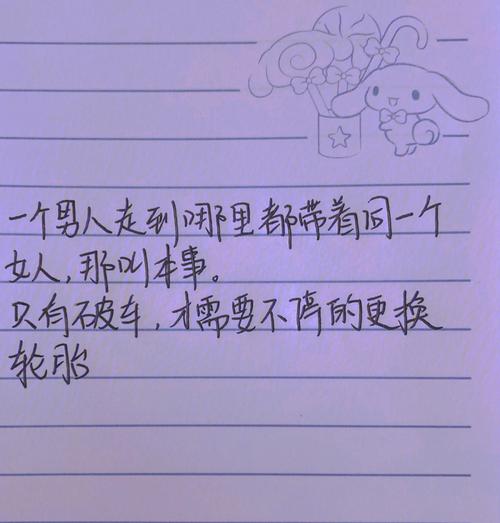 一个男人走到哪里都带着同一个
女人，那叫本事。
只有破车，才需要不停的更换
轮胎